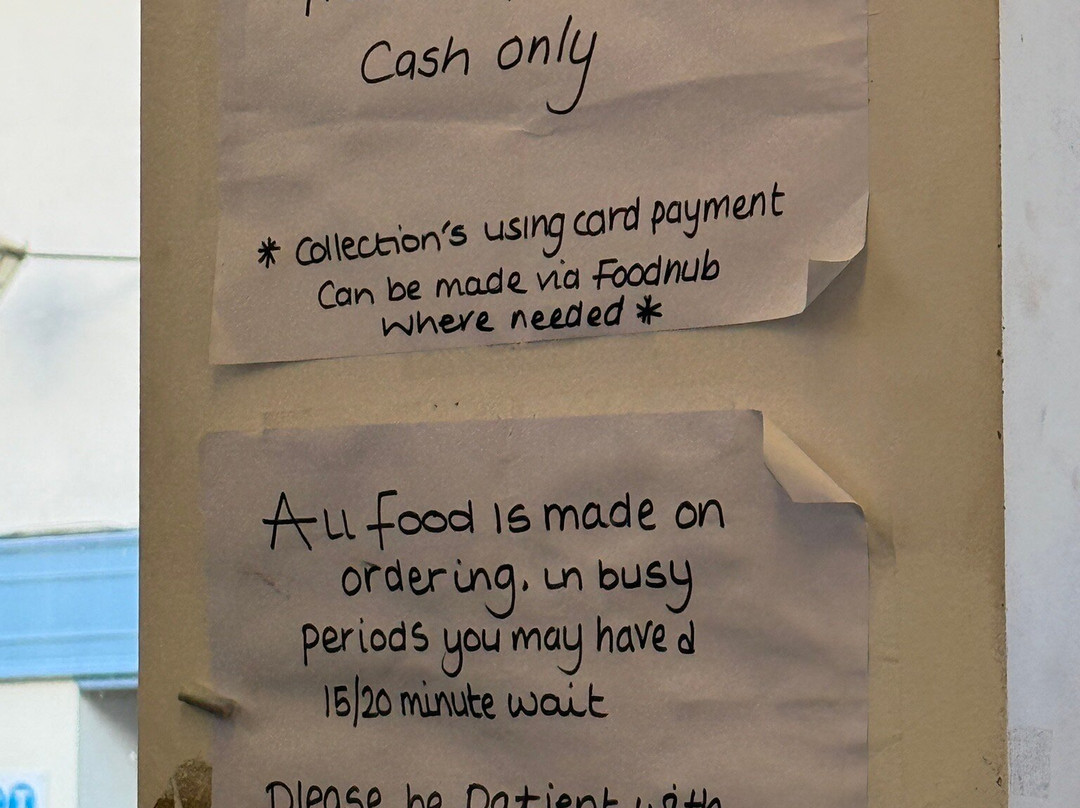 Cash only
* Collection's using card payment
Can be made via Foodhub
Where needed *
All food is made on
ordering. in busy
periods you may have a
15/20 minute wait
Please be Patient with